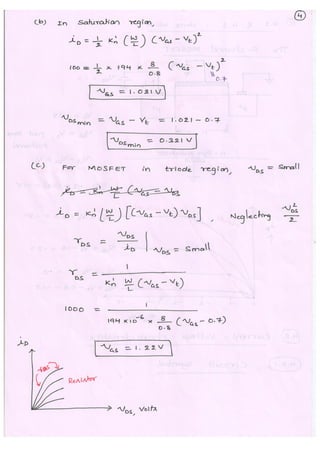 4
(b) In Saturation region,
i_D = 1/2 K'n (W/L) (V_GS - V_t)²
100 = 1/2 × 194 × 8/0.8 (V_GS - V_t)²
0.7
V_GS = 1.021 V
V_DS min = V_GS - V_t = 1.021 - 0.7
V_DS min = 0.321 V
(C) For MOSFET in triode region, V_DS = Small
i_D = K'n W/L (V_GS = V_DS
i_D = K'n (W/L) [(V_GS - V_t) V_DS], Neglecting V_DS²/2
r_DS = V_DS / i_D | V_DS = Small
r_DS = 1 / K'n W/L (V_GS - V_t)
1000 = 1 / 194 × 10⁻⁶ × 8/0.8 (V_GS - 0.7)
V_GS = 1.22 V
i_D
Resistor
V_DS, Volts